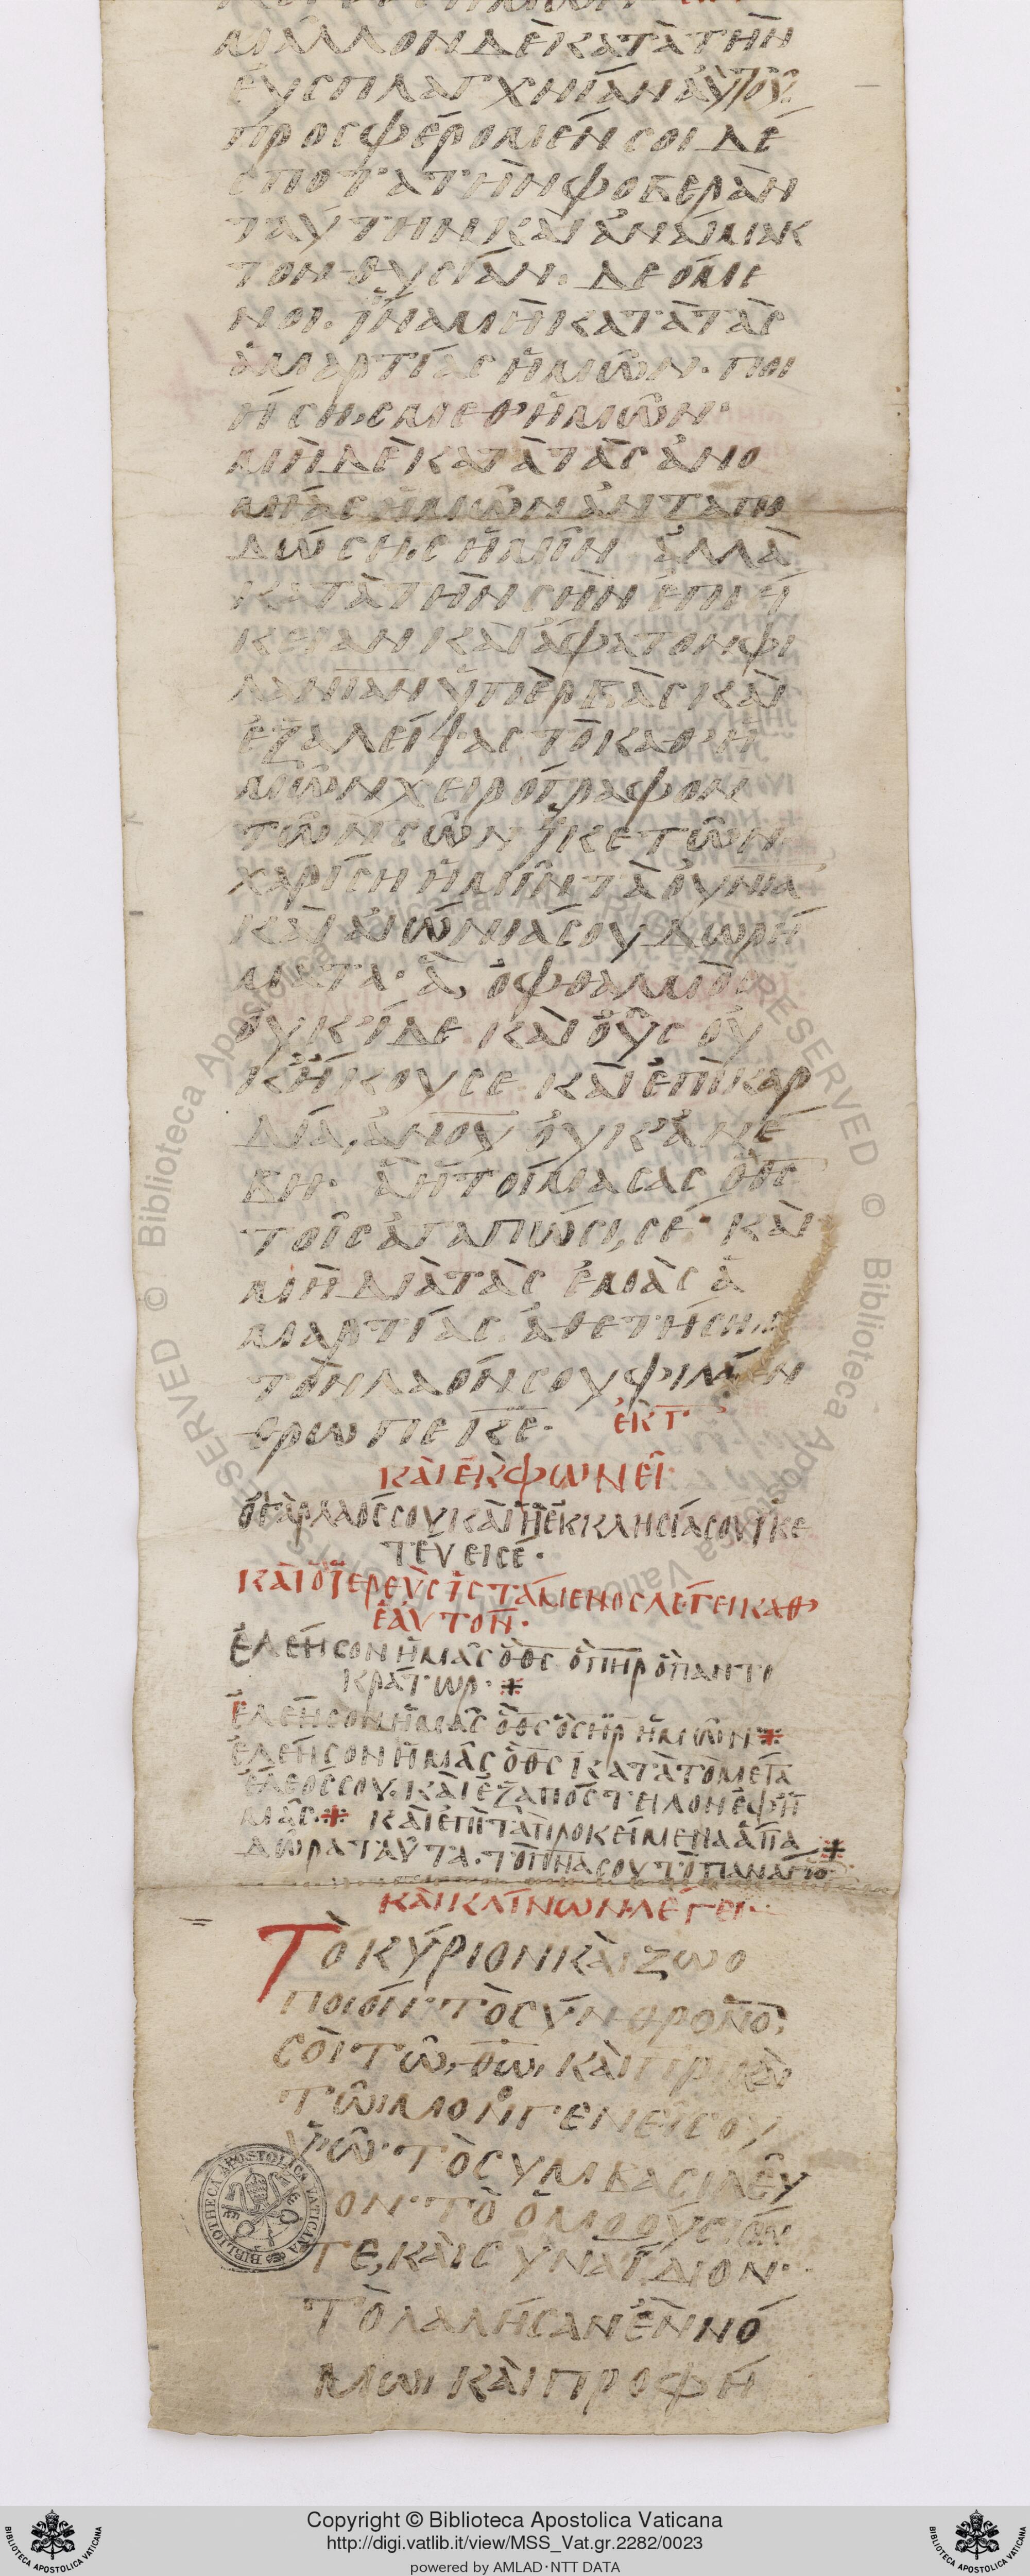 ΜΑ͂ΛΛΟΝ ΔῈ ΚΑΤᾺ ΤῊΝ
ἘΥΣΠΛΑΓΧΝΊΑΝ ἈΥΤΟΥ͂
ΠΡΟΣΦΈΡΟΜΈΝ ΣΟΙ ΔΈ
ΣΠΟΤΑ ΤῊΝ ΦΟΒΕΡᾺΝ
ΤΑΎΤΗΝ ΚΑῚ ἈΝΑΊΜΑΚ
ΤΟΝ ΘΥΣΊΑΝ. ΔΕΌΜΕ
ΝΟΙ. ἽΝΑ ΜῊ ΚΑΤᾺ ΤᾺΣ
ἉΜΑΡΤΊΑΣ ἩΜΩ͂Ν· ΠΟΙ
ΉΣΗ,Σ ΜΕΘ' ἩΜΩ͂Ν·
ΜΗΔῈ ΚΑΤᾺ ΤᾺΣ ἈΝΟ
ΜΊΑΣ ἩΜΩ͂Ν ἈΝΤΑΠΟ
ΔΏΣΗ,Σ ἩΜΙ͂Ν ἈΛΛᾺ
ΚΑΤᾺ ΤῊΝ ΣῊΝ ἘΠΙΕΊ
ΚΕΙΑΝ ΚΑῚ ἌΦΑΤΟΝ ΦΙ
ΛΑΝΙΑΝ ὙΠΕΡΒᾺΣ ΚΑῚ
ἘΞΑΛΕΊΨΑΣ ΤῸ ΚΑΘ' Ἡ
ΜΩ͂Ν ΧΕΙΡΌΓΡΑΦΟΝ
ΤΩ͂Ν ΣΩ͂Ν ἹΚΕΤΩ͂Ν
ΧΑΡΊΣΗ ἩΜΙ͂Ν ΤᾺ ΟΥΝΙΑ
ΚΑῚ ΑἸΏΝΙΆ ΣΟΥ ΔΩΡΉ
ΜΑΤΑ· Ἃ, ὈΦΘΑΛΜῸΣ
ΟΥΚ' ΊΔΕ ΚΑῚ ΟΥ͂Σ ΟΥ
Κ' ΉΚΟΥΣΕ ΚΑῚ ἘΠῚ ΚΑΡ
ΔΊΑ, ἈΝΟΥ ΟΥΚ' ἈΝΈ
ΒΗ· Ἃ ἩΤΟΊΜΑΣΑΣ Ὁ ΘΣ
ΤΟΙ͂Σ ἈΓΑΠΩ͂ΣΙ, ΣΈ· ΚΑῚ
ΜῊ ΔΙᾺ ΤᾺΣ ἘΜᾺΣ Ἁ
ΜΑΡΤΊΑΣ ἈΘΕΤΉΣΗ,Σ
ΤῸΝ ΛΑΌΝ ΣΟΥ ΦΙΛΆΝ
ΘΡΩΠΕ ΚΕ· ἘΚ Γ·
ΚΑῚ ἘΚΦΩΝΕΙ͂·
Ὁ ΓᾺΡ ΛΑΌΣ ΣΟΥ ΚΑῚ Ἡ ἘΚΚΛΗΣΊΑ ΣΟΥ ἹΚΕ
ΤΕΎΕΙ ΣΈ·
ΚΑῚ Ὁ ἹΕΡΕῪΣ ἹΣΤΆΜΕΝΟΣ ΛΈΓΕΙ ΚΑΘ'
ἙΑΥΤΟΝ·
ἘΛΈΗΣΟΝ ἩΜΑ͂Σ Ὁ ΘΣ Ὁ ΠΗΡ Ὁ ΠΑΝΤΟ
ΚΡΆΤΩΡ· ⁜
ἘΛΈΗΣΟΝ ἩΜΑ͂Σ Ὁ ΘΣ Ὁ ΣΗΡ ἩΜΩ͂Ν ⁜
ἘΛΈΗΣΟΝ ἩΜΑ͂Σ Ὁ ΘΣ ΚΑΤᾺ ΤῸ ΜΈΓΑ
ἜΛΕΌΣ ΣΟΥ. ΚΑῚ ἘΞΑΠΌΣΤΕΙΛΟΝ ἘΦ' Ἡ
ΜΑ͂Σ· ⁜ ΚΑῚ ἘΠῚ ΤᾺ ΠΡΟΚΕΊΜΕΝΑ ἍΓΙΑ
ΔΩ͂ΡΑ ΤΑΥ͂ΤΑ· ΤῸ ΠΝΑ ΣΟΥ ΤῸ ΠΑΝΆΓΙΟ ⁜
ΚΑῚ ΚΛΊΝΩΝ ΛΈΓΕΙ·
ΤῸ ΚΎΡΙΟΝ ΚΑῚ ΖΩΟ
ΠΟΙΌΝ· ΤῸ ΣΎΝΘΡΟΝΟ,
ΣΟῚ ΤΩ͂, ΘΩ, ΚΑῚ ΠΡΙ ΚΑῚ
ΤΩ͂Ι ΜΟΝΟΓΕΝΕΙ͂ ΣΟΥ
ΥΩ͂· ΤῸ ΣΥΜΒΑΣΙΛΕΥ͂
ΟΝ· ΤῸ ὉΜΟΟΎΣΙΌΝ
ΤΕ, ΚΑῚ ΣΥΝΑΪ́ΔΙΟΝ·
ΤῸ ΛΑΛΗ͂ΣΑΝ ἘΝ ΝΌ
ΜΩΙ ΚΑῚ ΠΡΟΦΉ
BIBLIOTHECA APOSTOLICA VATICANA
Copyright © Biblioteca Apostolica Vaticana
http://digi.vatlib.it/view/MSS_Vat.gr.2282/0023
powered by AMLAD·NTT DATA